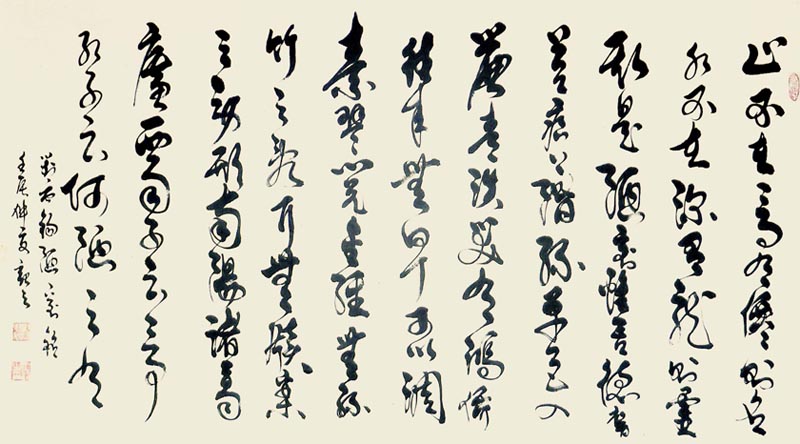 山不在高有僊則名
水不在深有龍則靈
斯是陋室惟吾德馨
苔痕上階綠草色入
簾青談笑有鴻儒
往來無白丁可以調
素琴閱金經無絲
竹之亂耳無牘案
之勞形南陽諸葛
廬西蜀子云亭
孔子云何陋之有
劉禹錫陋室銘
壬辰仲夏